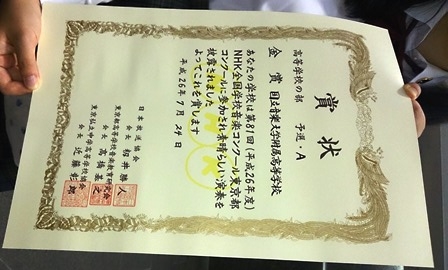 賞状
高等学校の部 予選・A
金賞 国立音楽大学附属高等学校
あなたの学校は第81回(平成26年度)
NHK全国学校音楽コンクール東京都
コンクールに参加され素晴らしい演奏を
披露されました
よってこれを賞します
平成26年7月 日
日本放送協会
会長 籾井勝人
東京都高等学校音楽教育研究会
会長 高橋基之
東京私立中学高等学校協会
会長 近藤彰郎
NHK